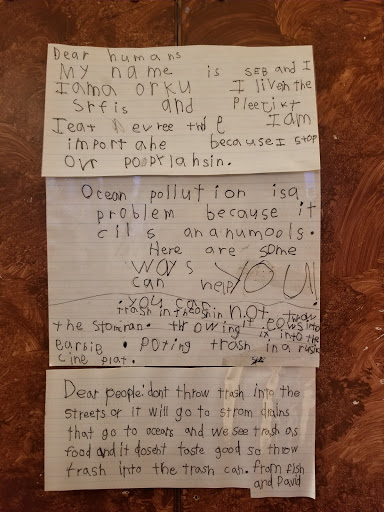 Dear humans
My name is SEB and I
I ama orku I livein the
Srfis and Pleerikt
I eat evree thde I am
import ahe because I stop
Ovr pooPylahsin.
Ocean pollution isa
problem because it
cills ananumools.
Here are some
ways YOU!
can help
• you can
trash in theoshin not throw
the stomran. throwing it eows into
it in into the
Barbig. • poting trash in a rusic
cine plat.
Dear people: dont throw trash into the
streets or it will go to strom drains
that go to oceans and we see trash as
food and it dosent taste good so throw
trash into the trash can. from fish
and David